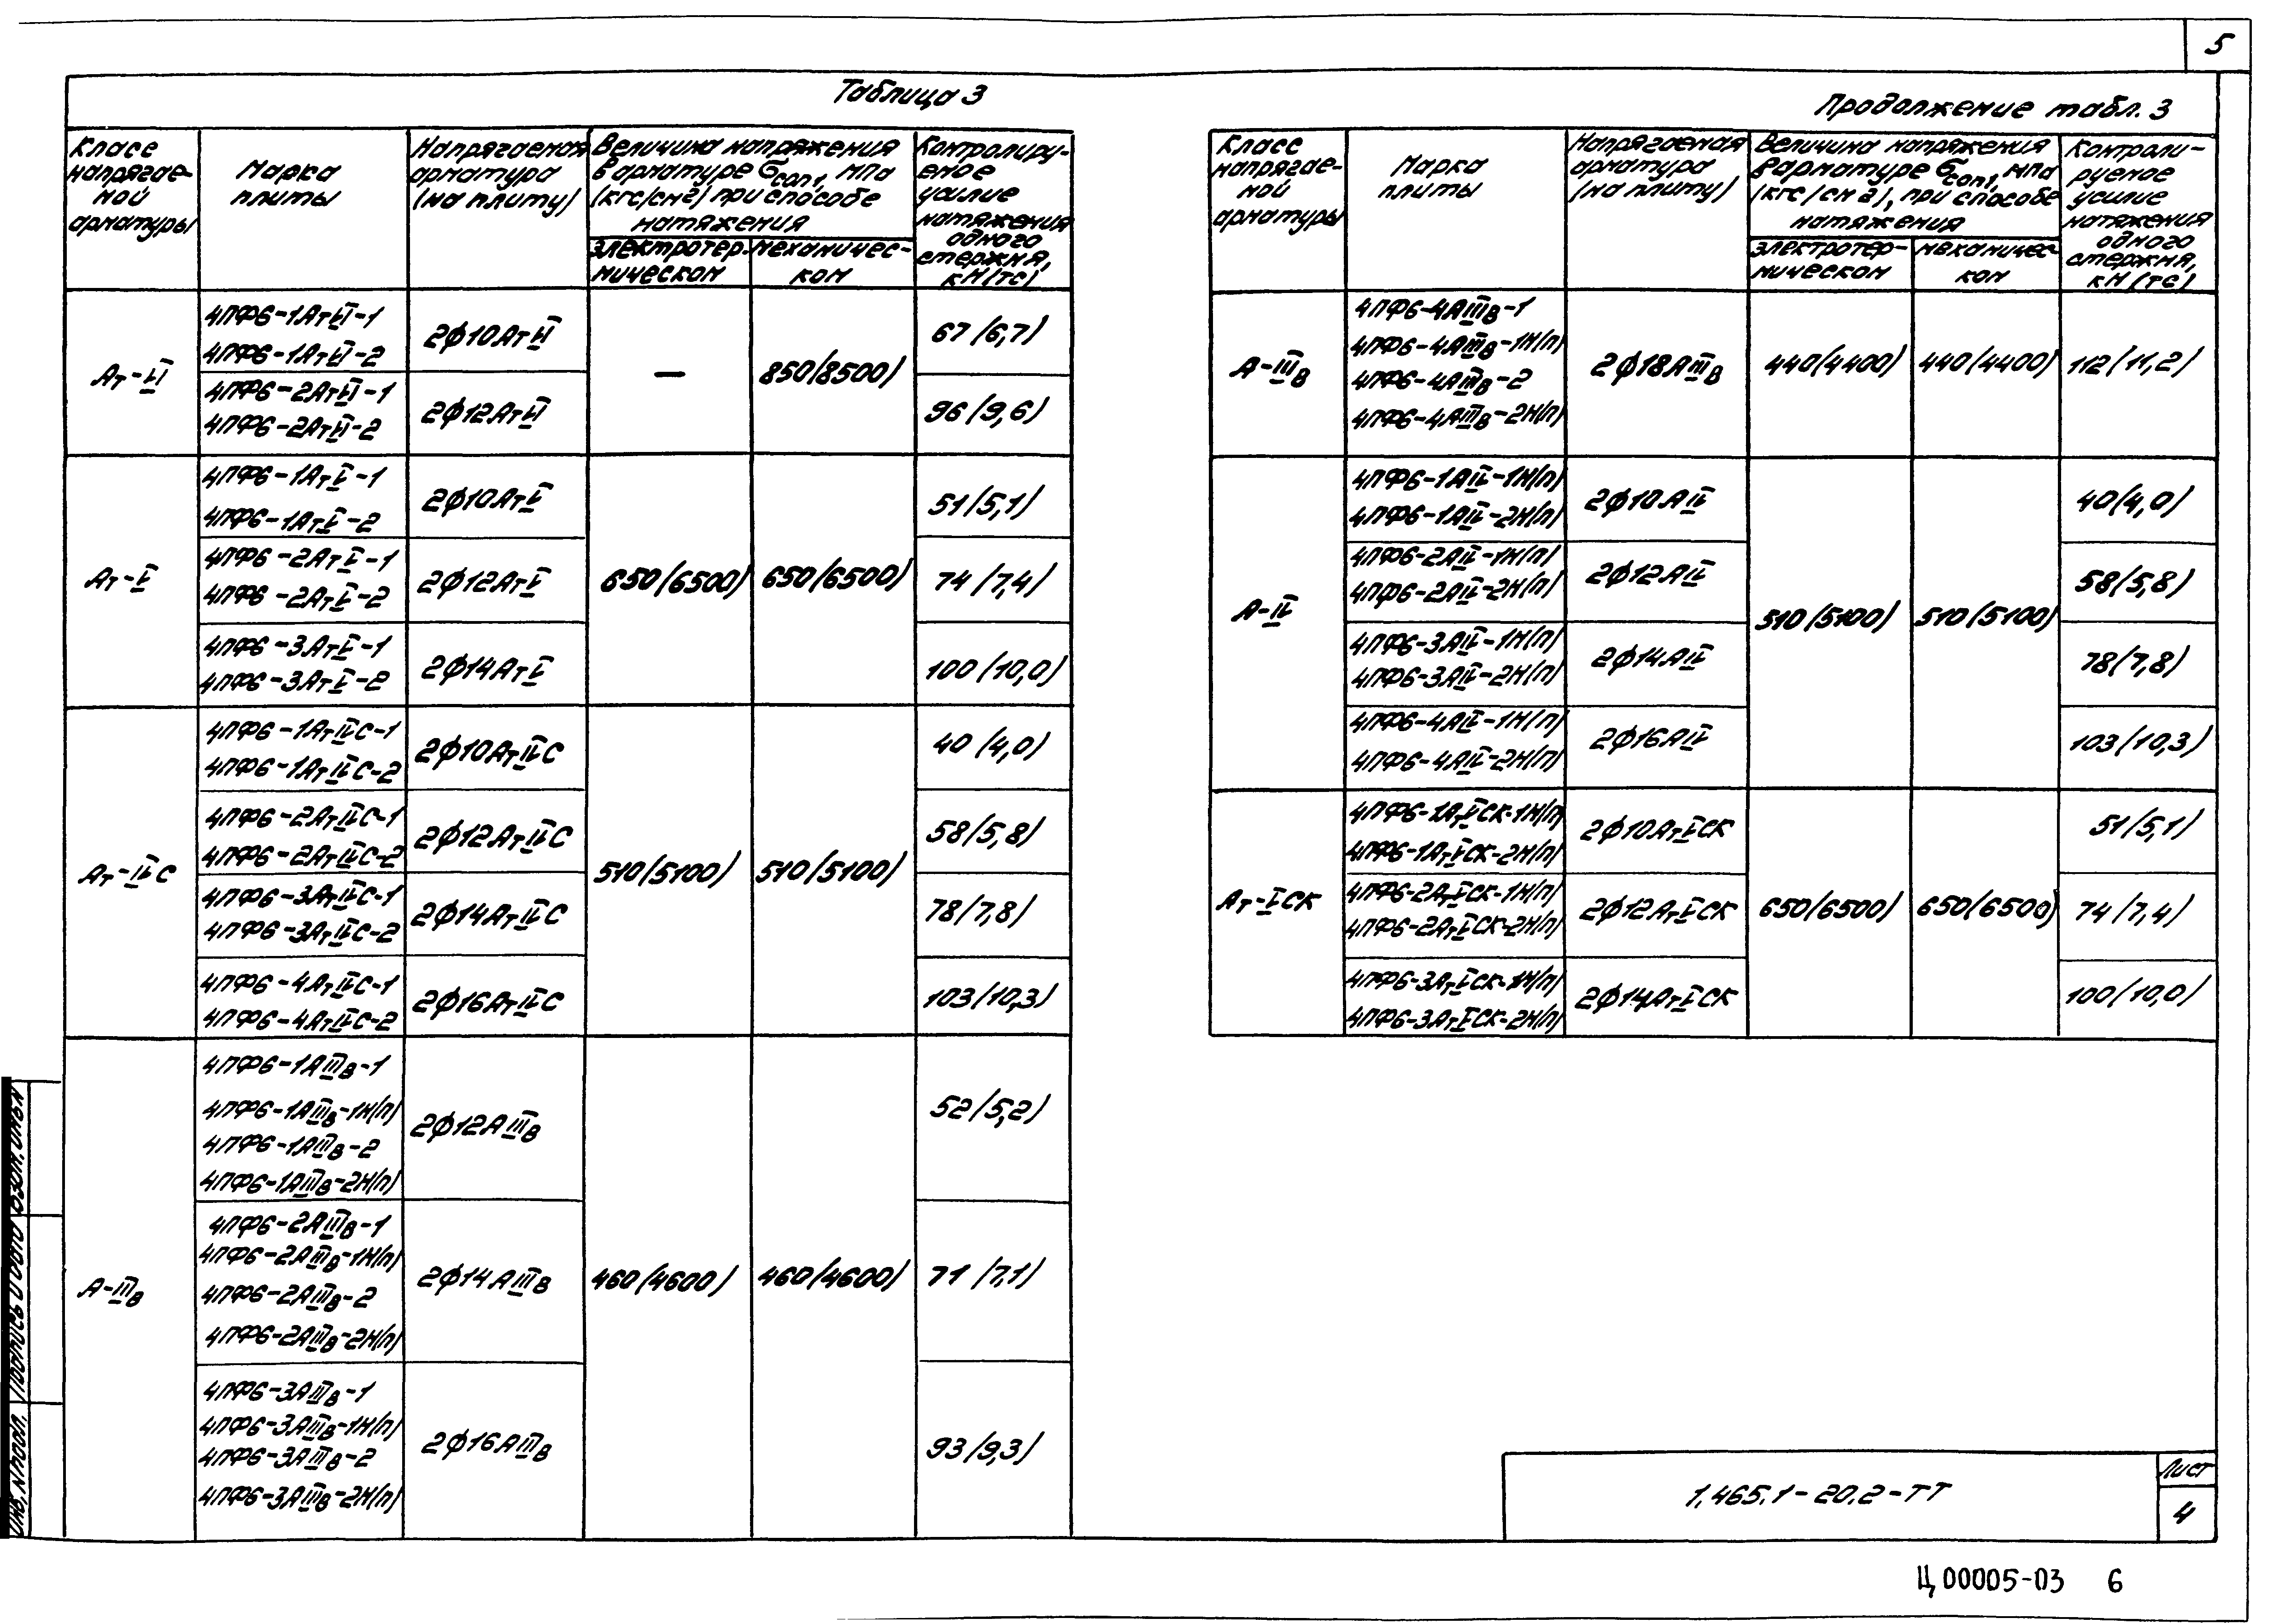 5
Таблица 3
Класс напрягае-мой арматуры
Марка плиты
Напрягаемая арматура (на плиту)
Величина напряжения в арматуре σcon1, мпа (кгс/см2) при способе натяжения
электротер-мическом
механичес-ком
Контролиру-емое усилие натяжения одного стержня, кН(тс)
Ат-VI
4ПФ6-1АтVI-1
4ПФ6-1АтVI-2
2ф10АтVI
67(6,7)
—
850(8500)
4ПФ6-2АтVI-1
4ПФ6-2АтVI-2
2ф12АтVI
96(9,6)
Ат-V
4ПФ6-1АтV-1
4ПФ6-1АтV-2
2ф10АтV
51(5,1)
4ПФ6-2АтV-1
4ПФ6-2АтV-2
2ф12АтV
650(6500)
650(6500)
74(7,4)
4ПФ6-3АтV-1
4ПФ6-3АтV-2
2ф14АтV
100(10,0)
Ат-IVС
4ПФ6-1АтIVС-1
4ПФ6-1АтIVС-2
2ф10АтIVС
40(4,0)
4ПФ6-2АтIVС-1
4ПФ6-2АтIVС-2
2ф12АтIVС
58(5,8)
510(5100)
510(5100)
4ПФ6-3АтIVС-1
4ПФ6-3АтIVС-2
2ф14АтIVС
78(7,8)
4ПФ6-4АтIVС-1
4ПФ6-4АтIVС-2
2ф16АтIVС
103(10,3)
А-IIIв
4ПФ6-1АIIIв-1
4ПФ6-1АIIIв-1Н(П)
4ПФ6-1АIIIв-2
4ПФ6-1АIIIв-2Н(П)
2ф12АIIIв
52(5,2)
4ПФ6-2АIIIв-1
4ПФ6-2АIIIв-1Н(П)
4ПФ6-2АIIIв-2
4ПФ6-2АIIIв-2Н(П)
2ф14АIIIв
460(4600)
460(4600)
71(7,1)
4ПФ6-3АIIIв-1
4ПФ6-3АIIIв-1Н(П)
4ПФ6-3АIIIв-2
4ПФ6-3АIIIв-2Н(П)
2ф16АIIIв
93(9,3)
Продолжение табл. 3
Класс напрягае-мой арматуры
Марка плиты
Напрягаемая арматура (на плиту)
Величина напряжения в арматуре σcon1, мпа (кгс/см2), при способе натяжения
электротер-мическом
механичес-ком
Контроли-руемое усилие натяжения одного стержня, кН(тс)
А-IIIв
4ПФ6-4АIIIв-1
4ПФ6-4АIIIв-1Н(П)
4ПФ6-4АIIIв-2
4ПФ6-4АIIIв-2Н(П)
2ф18АIIIв
440(4400)
440(4400)
112(11,2)
А-IV
4ПФ6-1АIV-1Н(П)
4ПФ6-1АIV-2Н(П)
2ф10АIV
40(4,0)
4ПФ6-2АIV-1Н(П)
4ПФ6-2АIV-2Н(П)
2ф12АIV
58(5,8)
510(5100)
510(5100)
4ПФ6-3АIV-1Н(П)
4ПФ6-3АIV-2Н(П)
2ф14АIV
78(7,8)
4ПФ6-4АIV-1Н(П)
4ПФ6-4АIV-2Н(П)
2ф16АIV
103(10,3)
Ат-VСК
4ПФ6-1АтVСК-1Н(П)
4ПФ6-1АтVСК-2Н(П)
2ф10АтVСК
51(5,1)
4ПФ6-2АтVСК-1Н(П)
4ПФ6-2АтVСК-2Н(П)
2ф12АтVСК
650(6500)
650(6500)
74(7,4)
4ПФ6-3АтVСК-1Н(П)
4ПФ6-3АтVСК-2Н(П)
2ф14АтVСК
100(10,0)
Инв. N подл.
Подпись и дата
Взам. инв. N
1.465.1-20.2-ТТ
Лист
4
Ц00005-03 6